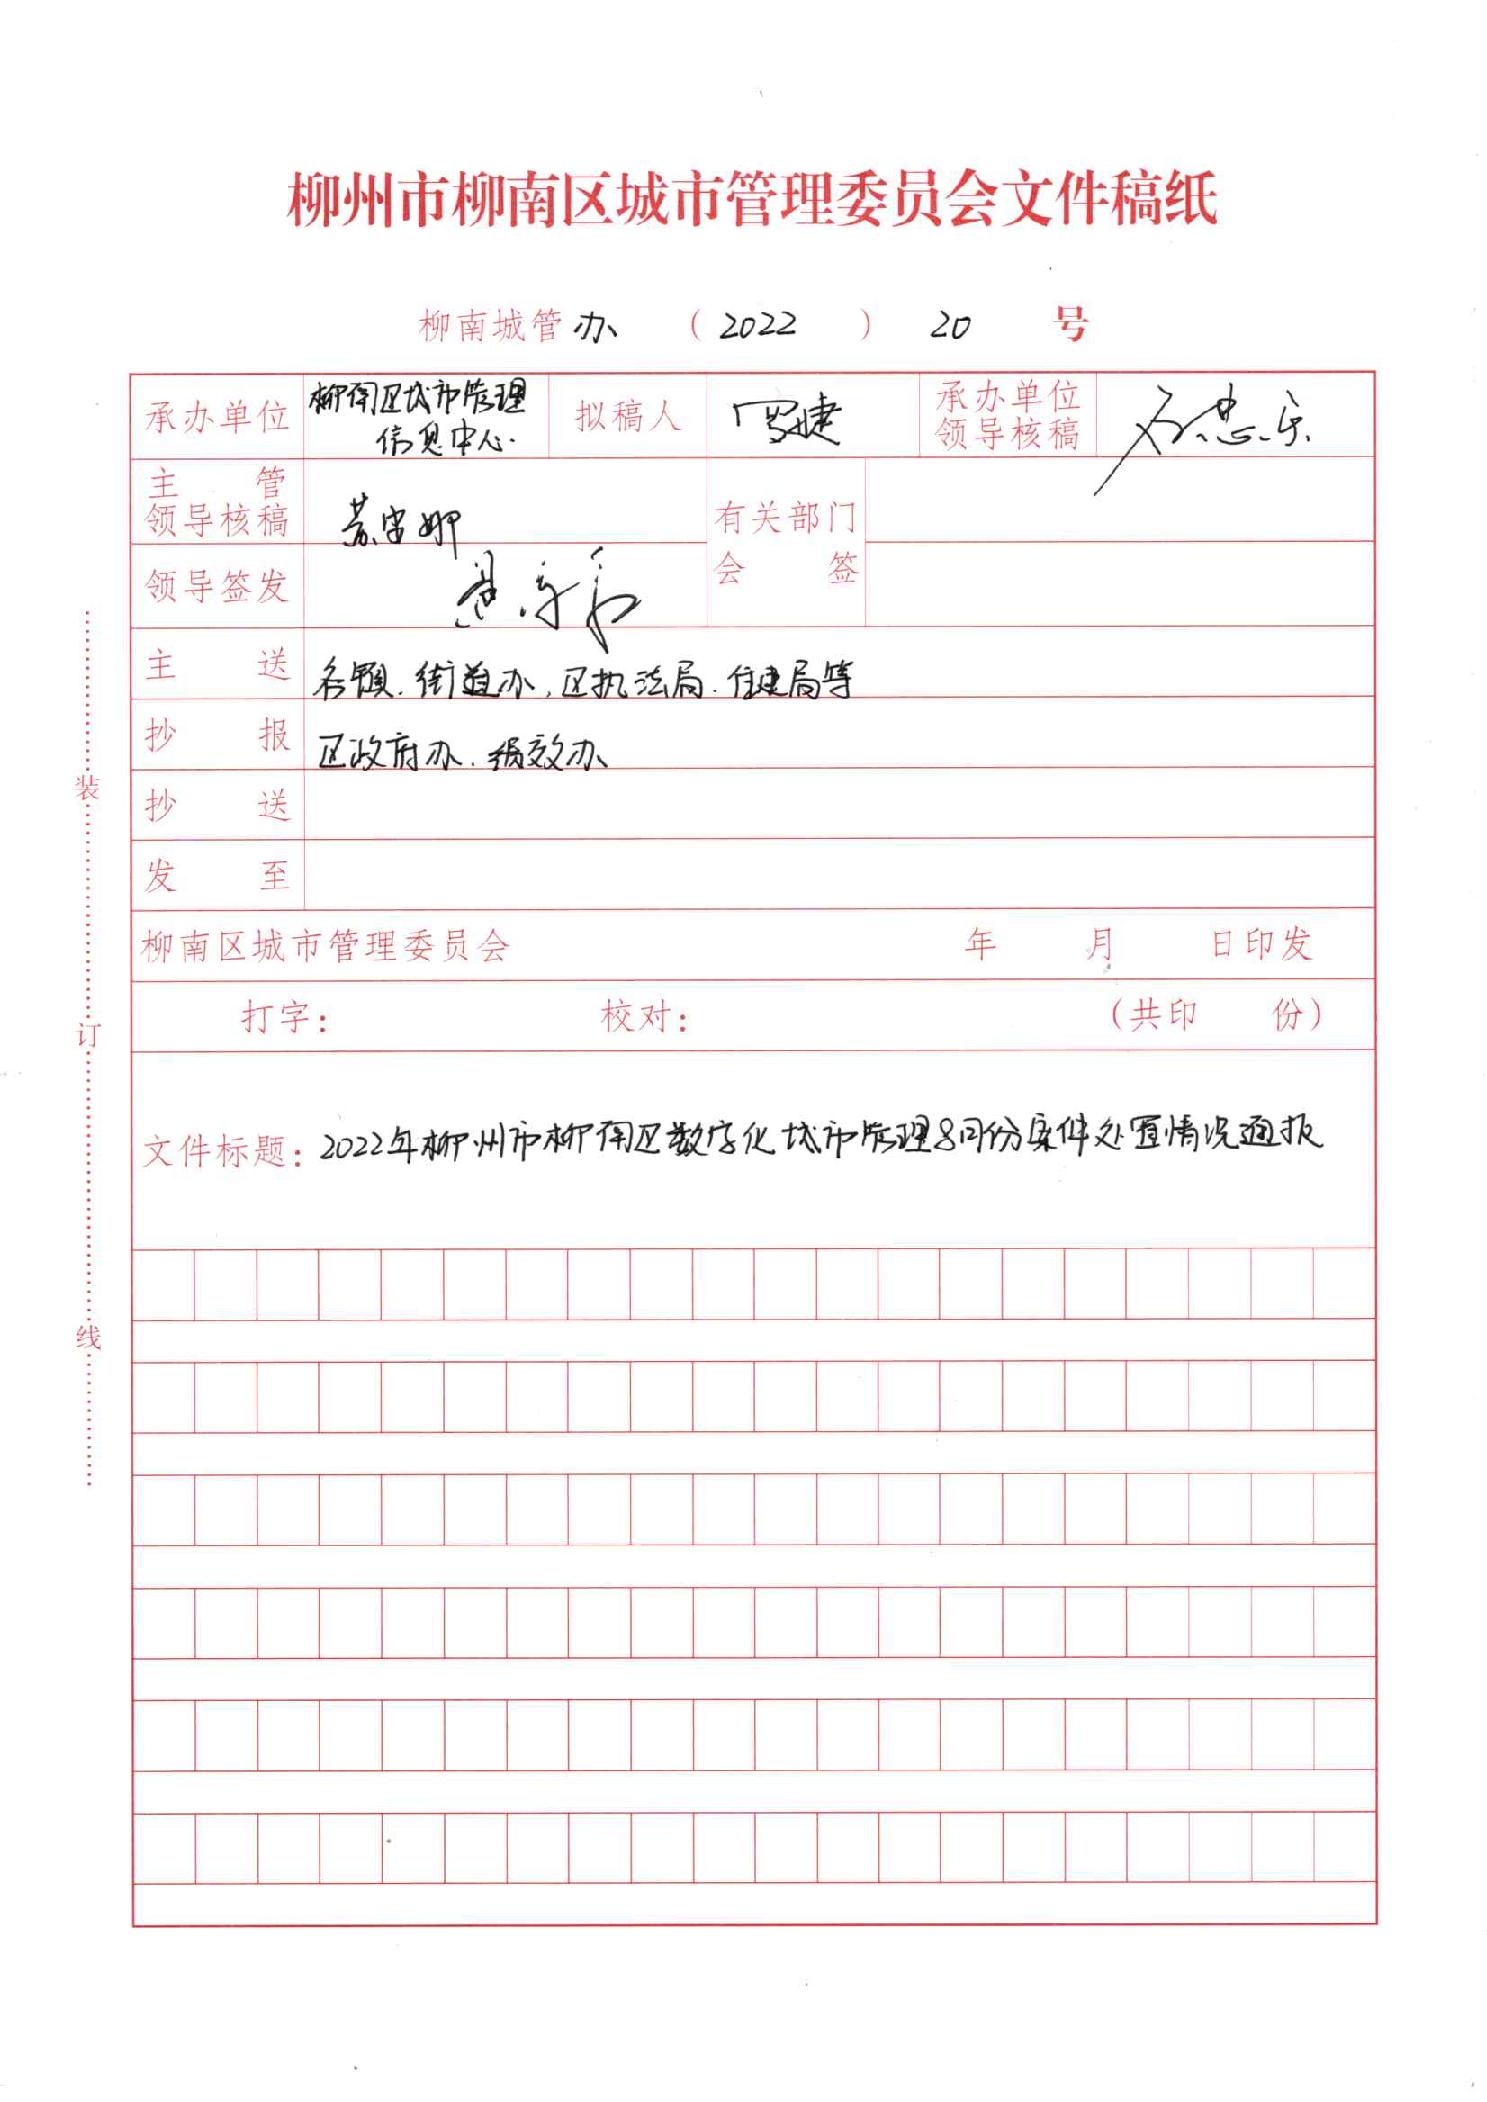 柳州市柳南区城市管理委员会文件稿纸
柳南城管办（2022）20号
承办单位 柳南区城市管理信息中心. 拟稿人 罗婕 承办单位领导核稿
主管领导核稿 有关部门会签
领导签发
主送 各镇、街道办、区执法局、住建局等
抄报 区政府办、绩效办
抄送
发至
柳南区城市管理委员会 年 月 日印发
打字： 校对： （共印 份）
文件标题：2022年柳州市柳南区数字化城市管理8月份案件处置情况通报
装订线